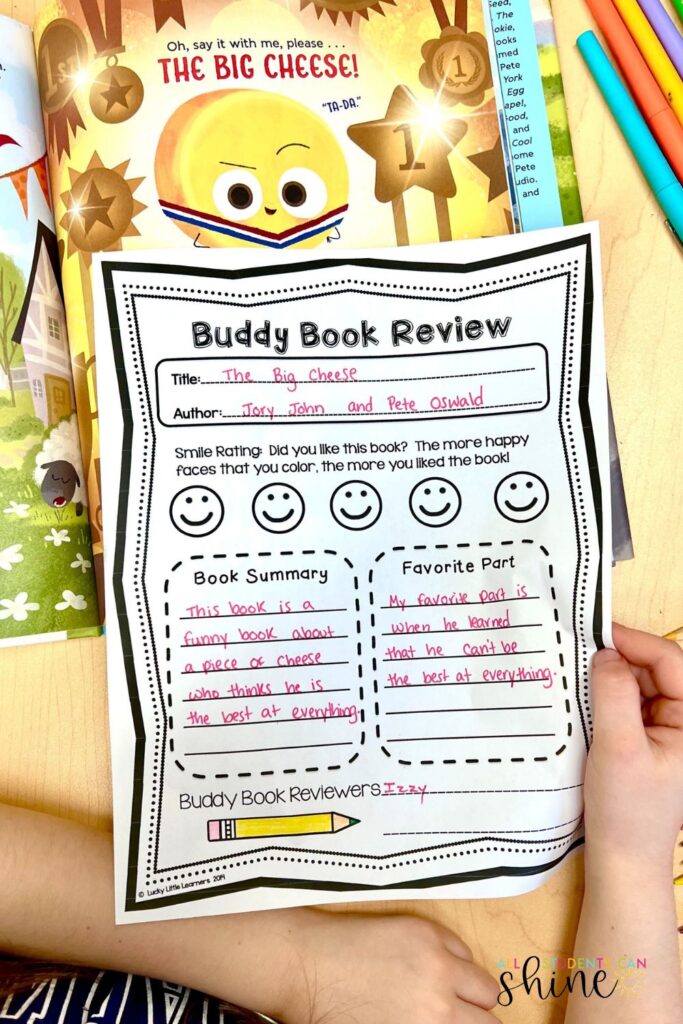 Oh, say it with me, please . . .
THE BIG CHEESE!
"TA-DA."
1st
1
1
Seed,
The
ooks
med
Pete
York
Egg
and
Cool
ome
Pete
and
Buddy Book Review
Title: The Big Cheese
Author: Jory John and Pete Oswald
Smile Rating: Did you like this book? The more happy
faces that you color, the more you liked the book!
Book Summary
This book is a
funny book about
a piece of cheese
who thinks he is
the best at everything.
Favorite Part
My favorite part is
when he learned
that he can't be
the best at everything.
Buddy Book Reviewers Izzy
© Lucky Little Learners, 2019
ALL STUDENTS CAN
shine